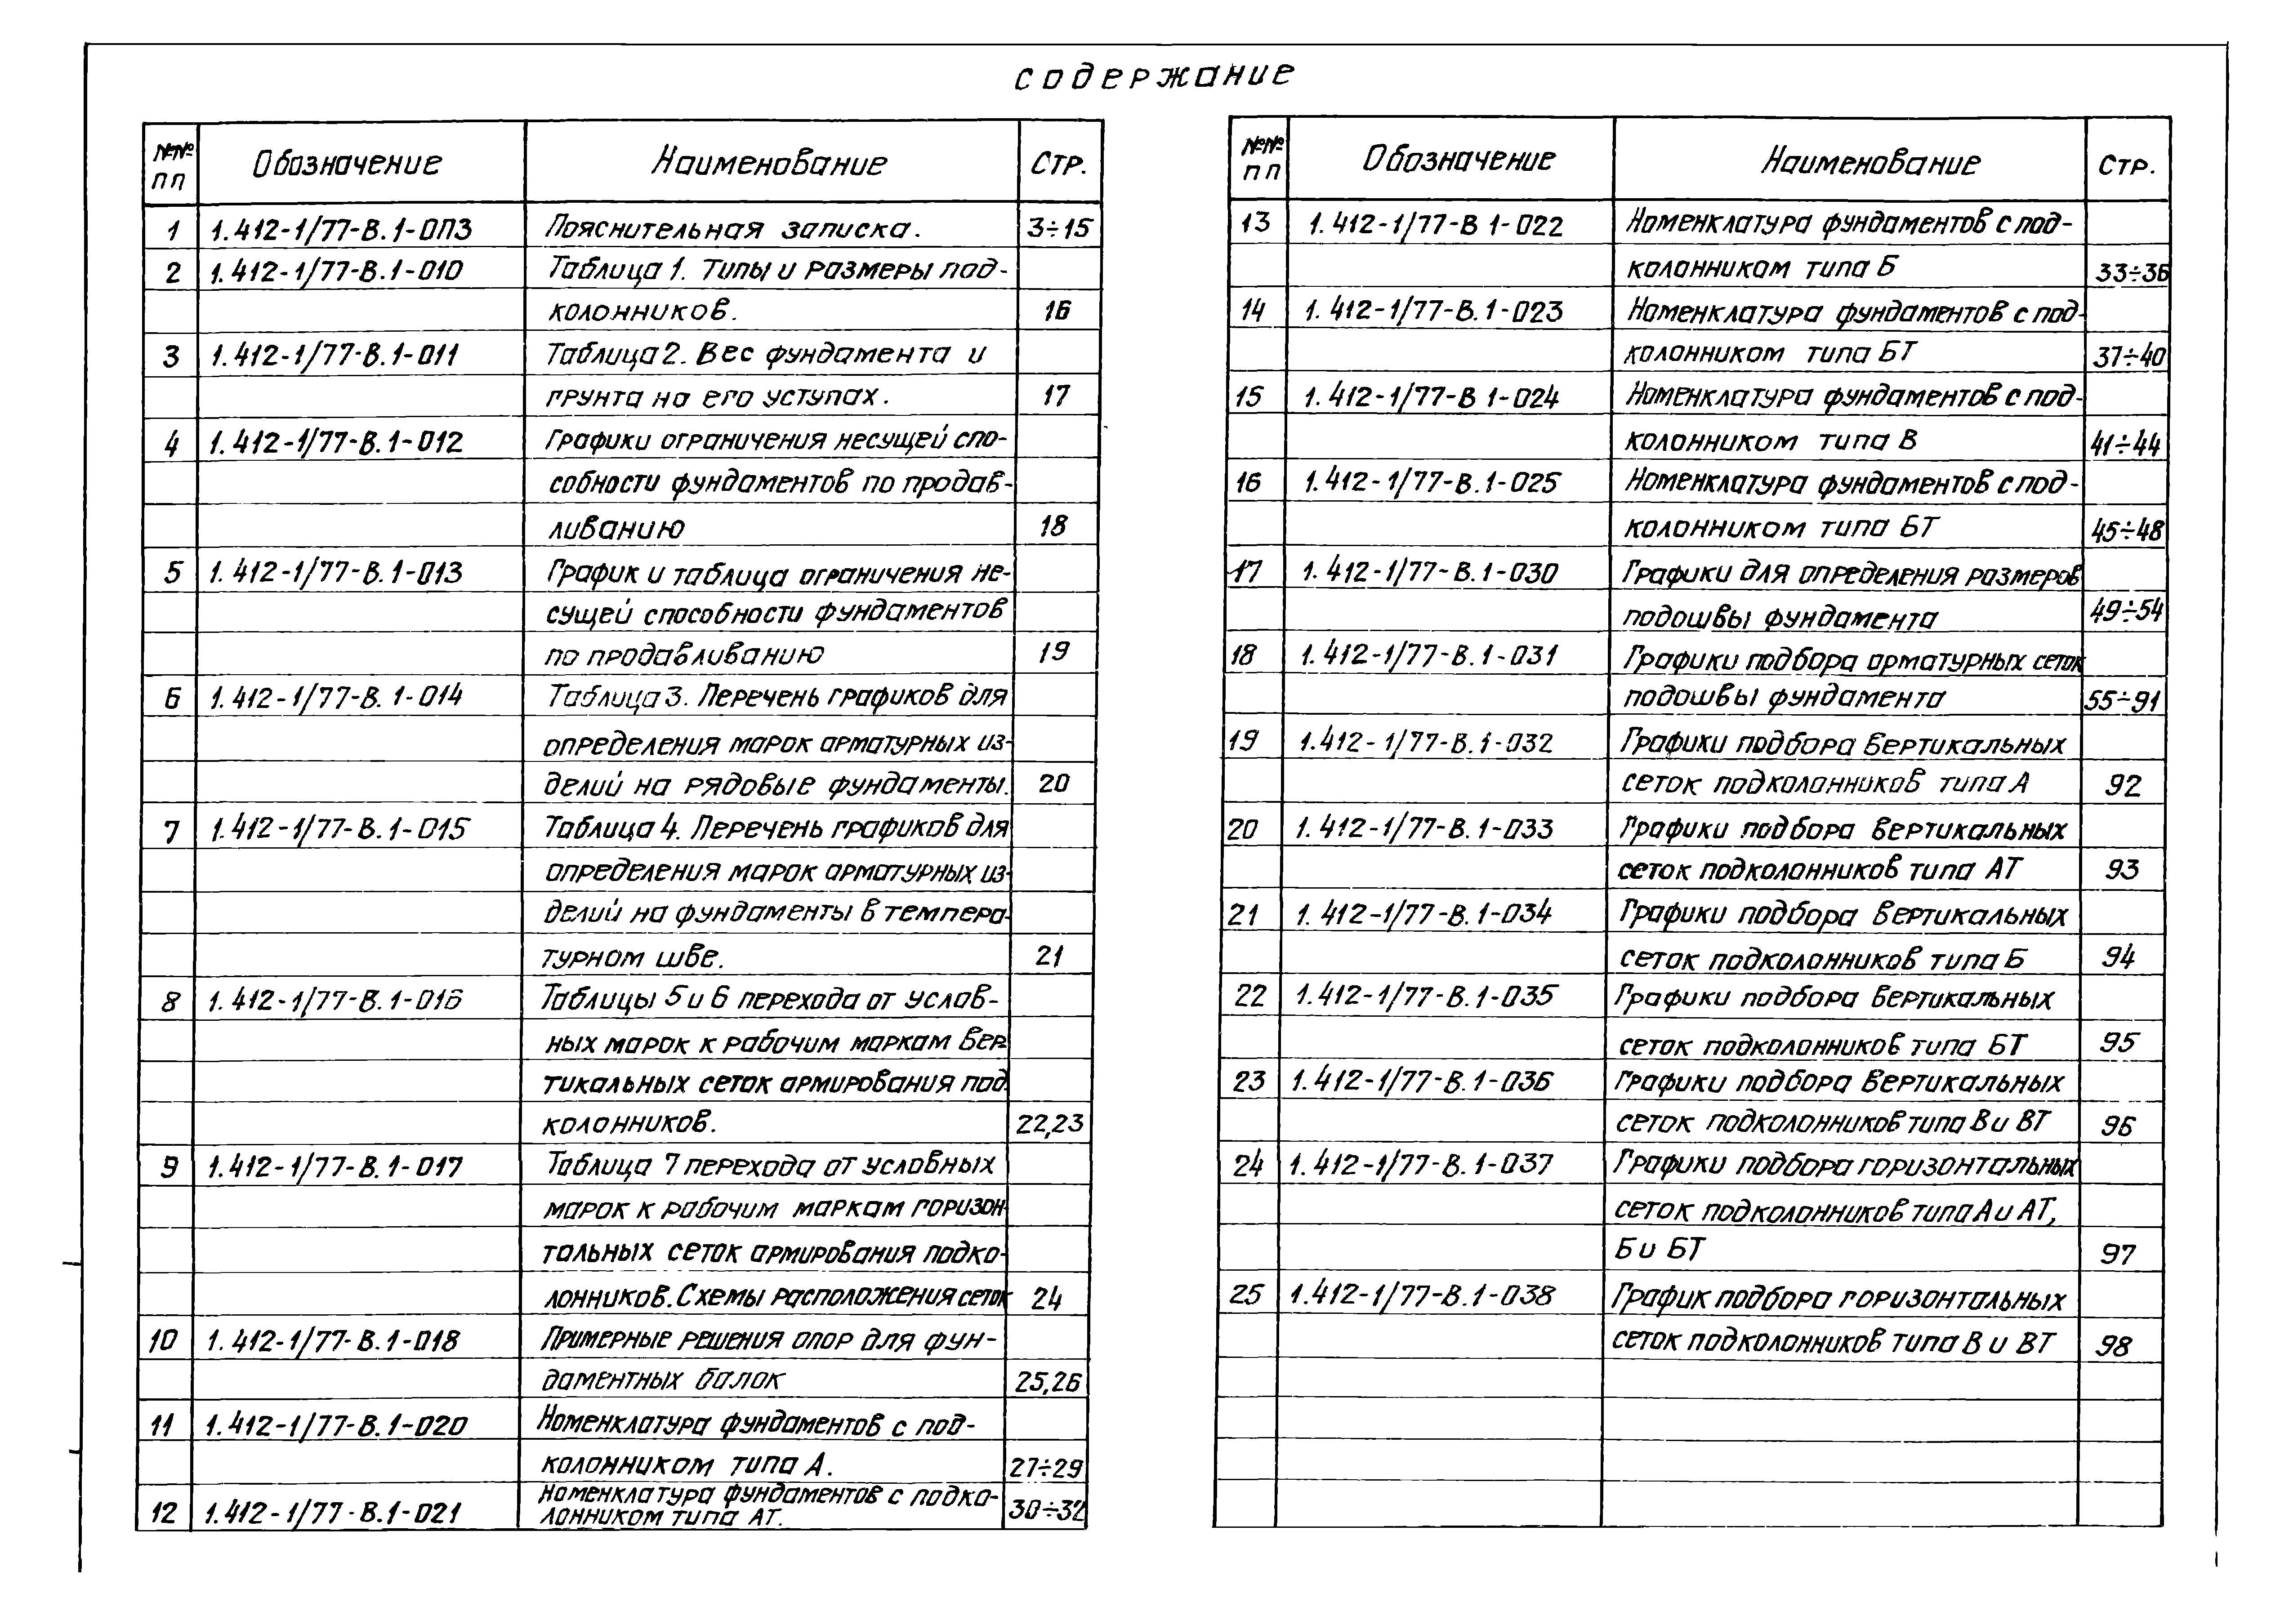 содержание
№№ пп Обозначение Наименование Стр.
1 1.412-1/77-В.1-0ПЗ Пояснительная записка. 3÷15
2 1.412-1/77-В.1-010 Таблица 1. Типы и размеры под-
колонников. 16
3 1.412-1/77-В.1-011 Таблица 2. Вес фундамента и
грунта на его уступах. 17
4 1.412-1/77-В.1-012 Графики ограничения несущей спо-
собности фундаментов по продав-
ливанию 18
5 1.412-1/77-В.1-013 График и таблица ограничения не-
сущей способности фундаментов
по продавливанию 19
6 1.412-1/77-В.1-014 Таблица 3. Перечень графиков для
определения марок арматурных из-
делий на рядовые фундаменты. 20
7 1.412-1/77-В.1-015 Таблица 4. Перечень графиков для
определения марок арматурных из-
делий на фундаменты в темпера-
турном шве. 21
8 1.412-1/77-В.1-016 Таблицы 5 и 6 перехода от услов-
ных марок к рабочим маркам вер-
тикальных сеток армирования под
колонников. 22,23
9 1.412-1/77-В.1-017 Таблица 7 перехода от условных
марок к рабочим маркам горизон-
тальных сеток армирования подко-
лонников. Схемы расположения сеток 24
10 1.412-1/77-В.1-018 Примерные решения опор для фун-
даментных балок 25,26
11 1.412-1/77-В.1-020 Номенклатура фундаментов с под-
колонником типа А. 27÷29
12 1.412-1/77-В.1-021 Номенклатура фундаментов с подко-
лонником типа АТ. 30÷32
№№ пп Обозначение Наименование Стр.
13 1.412-1/77-В 1-022 Номенклатура фундаментов с под-
колонником типа Б 33÷36
14 1.412-1/77-В.1-023 Номенклатура фундаментов с под-
колонником типа БТ 37÷40
15 1.412-1/77-В 1-024 Номенклатура фундаментов с под-
колонником типа В 41÷44
16 1.412-1/77-В.1-025 Номенклатура фундаментов с под-
колонником типа БТ 45÷48
17 1.412-1/77-В.1-030 Графики для определения размеров
подошвы фундамента 49÷54
18 1.412-1/77-В.1-031 Графики подбора арматурных сеток
подошвы фундамента 55÷91
19 1.412-1/77-В.1-032 Графики подбора вертикальных
сеток подколонников типа А 92
20 1.412-1/77-В.1-033 Графики подбора вертикальных
сеток подколонников типа АТ 93
21 1.412-1/77-В.1-034 Графики подбора вертикальных
сеток подколонников типа Б 94
22 1.412-1/77-В.1-035 Графики подбора вертикальных
сеток подколонников типа БТ 95
23 1.412-1/77-В.1-036 Графики подбора вертикальных
сеток подколонников типа В и ВТ 96
24 1.412-1/77-В.1-037 Графики подбора горизонтальных
сеток подколонников типа А и АТ,
Б и БТ 97
25 1.412-1/77-В.1-038 График подбора горизонтальных
сеток подколонников типа В и ВТ 98